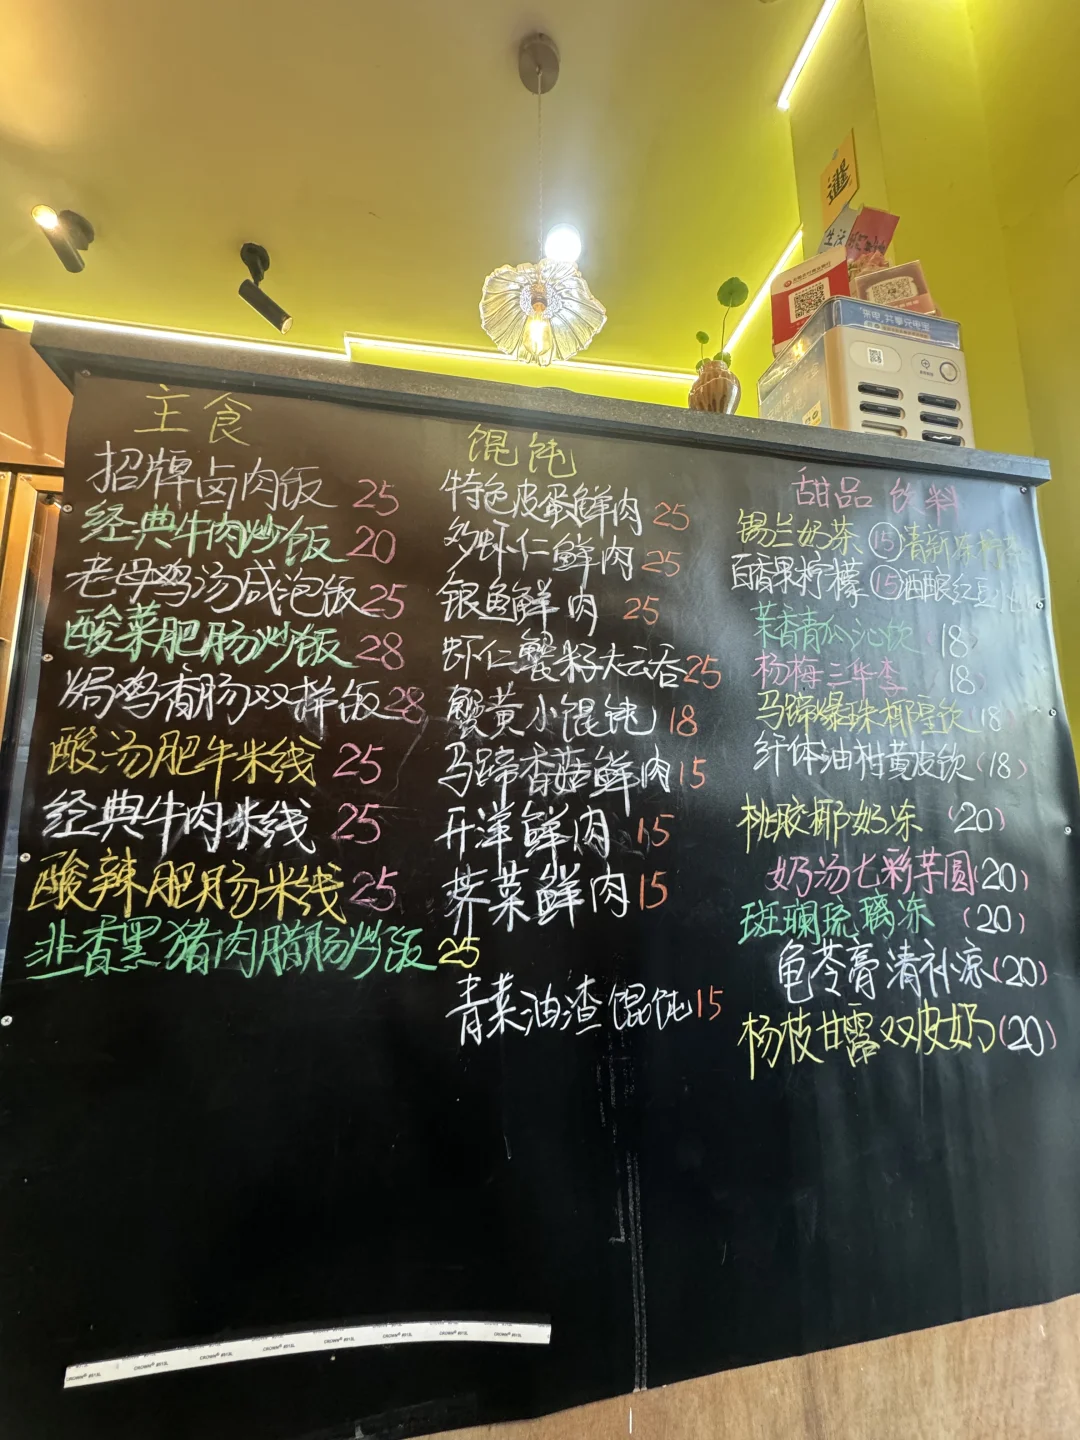 主食
招牌卤肉饭 25
经典牛肉炒饭 20
老母鸡汤咸泡饭 25
酸菜肥肠炒饭 28
焗鸡香肠双拼饭 28
酸汤肥牛米线 25
经典牛肉米线 25
酸辣肥肠米线 25
韭香黑猪肉腊肠炒饭 25
馄饨
特色皮蛋鲜肉 25
多虾仁鲜肉 25
银鱼鲜肉 25
虾仁蟹籽大云吞 25
蟹黄小馄饨 18
马蹄香菇鲜肉 15
开洋鲜肉 15
荠菜鲜肉 15
青菜油渣馄饨 15
甜品 饮料
锡兰奶茶 ⑮ 清新冻柠茶
百香果柠檬 ⑮ 酒酿红豆
茉香青瓜沁饮 (18)
杨梅三华李 (18)
马蹄爆珠椰星饮 (18)
纤体油柑黄皮饮 (18)
桃胶椰奶冻 (20)
奶汤七彩芋圆 (20)
斑斓琉璃冻 (20)
龟苓膏 清补凉 (20)
杨枝甘露 双皮奶 (20)
来电, 共享充电宝
CROWN® #513L
CROWN® #513L
CROWN® #513L
CROWN® #513L
CROWN® #513L
CROWN® #513L